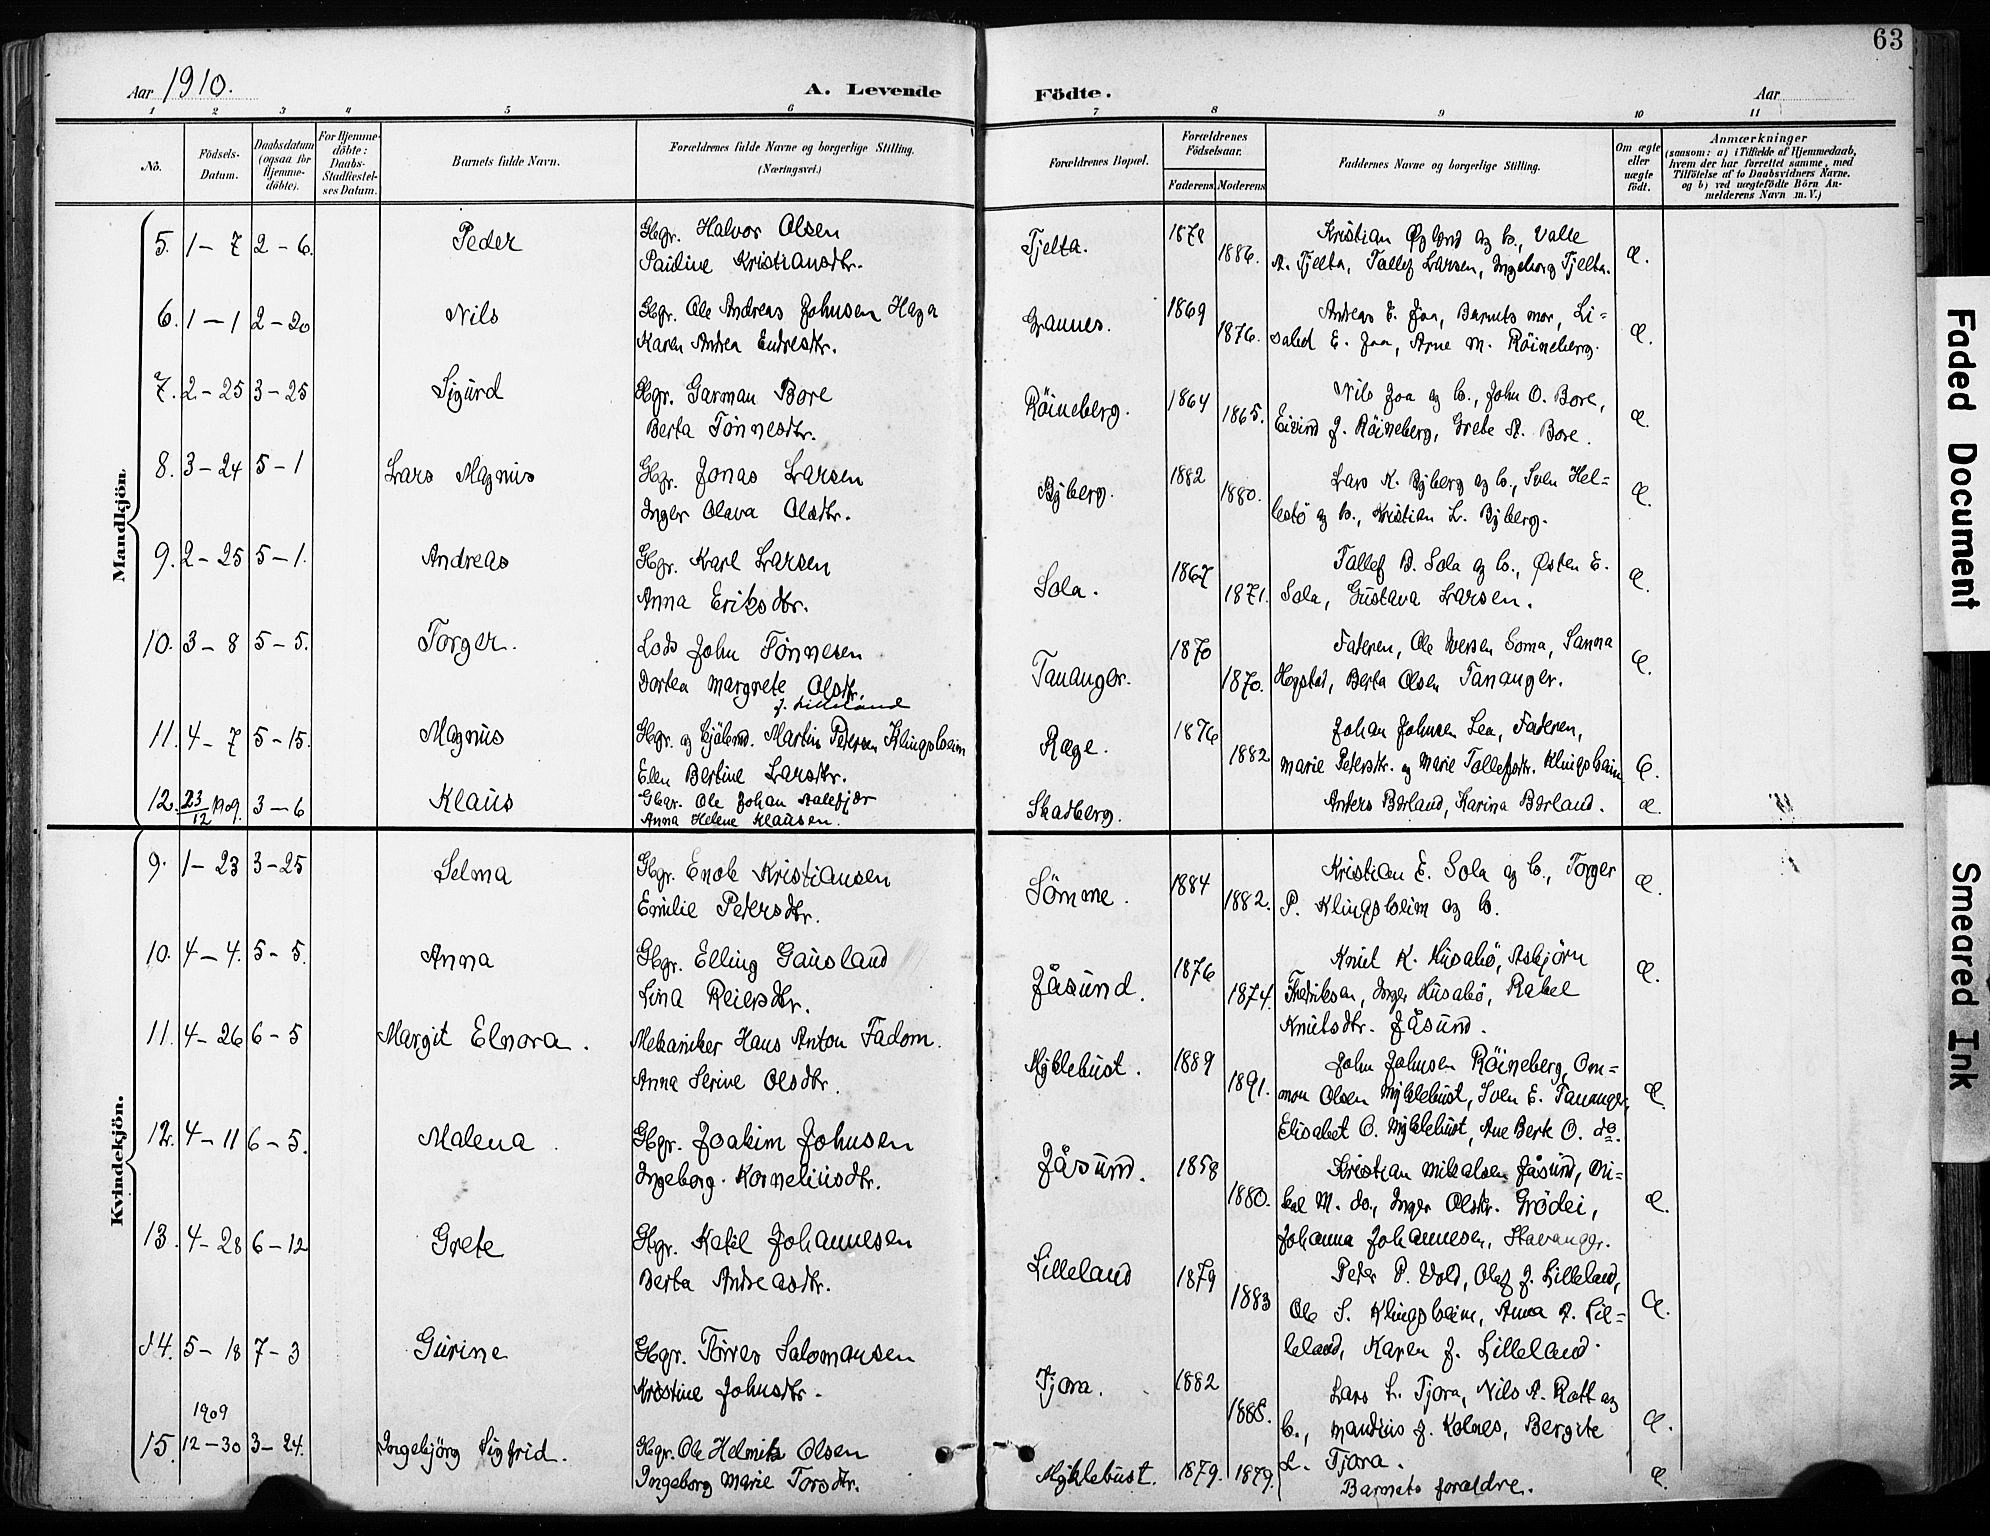 63
Aar 1910.
A. Levende Födte.
Aar
1 2 3 4 5 6 7 8 9 10 11
No.
Födsels-Datum.
Daabsdatum (ogsaa för Hjemme-döbte).
For Hjemme-döbte: Daabs-Stadfæstel-ses Datum.
Barnets fulde Navn.
Forældrenes fulde Navne og borgerlige Stilling. (Næringsvei.)
Forældrenes Bopæl.
Forældrenes Födselsaar.
Faderens. Moderens.
Faddernes Navne og borgerlige Stilling.
Om ægte eller uægte födt.
Anmærkninger
(saasom: a) i Tilfælde af Hjemmedaab, hvem der har forrettet samme, med Tilföielse af to Daabsvidners Navne. og b) ved uægtefödte Börn An-melderens Navn m. V.)
Mandkjön.
5. 1-7 2-6. Peder Gbgr. Halvor Olsen Tjelta. Kristian Øglend og h., Valle
Pauline Kristiansdtr. 1886. A. Tjelta, Tallef Larsen, Ingeborg Tjelta. Æ.
6. 1-1 2-20 Nils Gbgr. Ole Andreas Johnsen Haga Grannes. 1869 Andreas E. Joa, Barnets mor, Li=
Karen Andrea Endresdtr. 1876. sabed E. Joa, Arne M. Röineberg. Æ.
7. 2-25 3-25 Sigurd Gbgr. Garman Bore Röineberg. 1864 Nils Joa og h., John O. Bore,
Berta Tönnesdtr. 1865. Eivind J. Röineberg, Grete A. Bore. Æ.
8. 3-24 5-1 Lars Magnus Gbgr. Jonas Larsen Byberg. 1882 Lars K. Byberg og h., Sven Hel=
Inger Olava Olsdtr. 1880. lestö og h., Kristian L. Byberg. Æ.
9. 2-25 5-1. Andreas Gbgr. Karl Larsen Sola. 1867 Tallef B. Sola og h., Østen E.
Anna Eriksdtr. 1871. Sola, Gustava Larsen. Æ.
10. 3-8 5-5. Torger. Lods John Tönnesen Tananger. 1870 Faderen, Ole Iversen Soma, Sanna
Dortea Margrete Olsdtr. 1870. Hogstad, Berta Olsen Tananger. Æ.
f. Lilleland
11. 4-7 5-15. Magnus Gbgr. og Martin Petersen Klingsheim Ræge. 1876 Johan Johnsen Lea, Faderen,
Elen Bertine Larsdtr. 1882 Marie Petersdtr. og Marie Tollefsdtr. Klingsheim Æ.
12. 23/12 1909. 3-6 Klaus Gbgr. Ole Johan Malefjær Skadberg. Anders Børland, Karina Børland. Æ.
Anna Helene Klausen.
Kvindekjön.
9. 1-23 3-25 Selma Gbgr. Enok Kristiansen Sömme. 1884 Kristian E. Sola og h., Torger
Emilie Petersdtr. 1882. P. Klingsheim og h. Æ.
10. 4-4. 5-5. Anna Gbgr. Elling Gausland Jåsund. 1876 Knut K. Husabö, Asbjörn
Lina Reiersdtr. 1874. Fredriksen, Inger Husabö, Rakel
Knutsdtr. Jåsund. Æ.
11. 4-26 6-5 Margit Elnora. Mekaniker Hans Anton Fadom. Myklebust. 1889 John Johnsen Röineberg, Om=
Anna Serine Olsdtr. 1891. mon Olsen Myklebust, Sven E. Tananger,
Elisabet O. Myklebust, Ane Berte O. do. Æ.
12. 4-11 6-5. Malena Gbgr. Joakim Johnsen Jåsund. 1858 Kristian Mikalsen Jåsund, Mi=
Ingeborg Korneliusdtr. 1880. kal M. do., Inger Olsdtr. Grödei,
Johanna Johannesen, Stavanger. Æ.
13. 4-28 6-12 Grete Gbgr. Ketil Johannesen Lilleland 1879 Peter P. Vold, Olaf J. Lilleland,
Berta Andreasdtr. 1883 Ole S. Klingsheim, Anna A. Lil=
leland, Karen J. Lilleland. Æ.
14. 5-18 7-3 Gurine Gbgr. Törres Salomansen Tjora. 1882 Lars L. Tjora, Nils A. Rott og
Kristine Johnsdtr. 1885. h., Mandius J. Kolnes, Bergite
L. Tjora. Æ.
1909
15. 12-30 3-24. Ingebjörg Sigfrid. Gbgr. Ole Helmik Olsen Myklebust. 1879. 1879. Barnets forældre. Æ.
Ingeborg Marie Torsdtr.
Faded Document
Smeared Ink